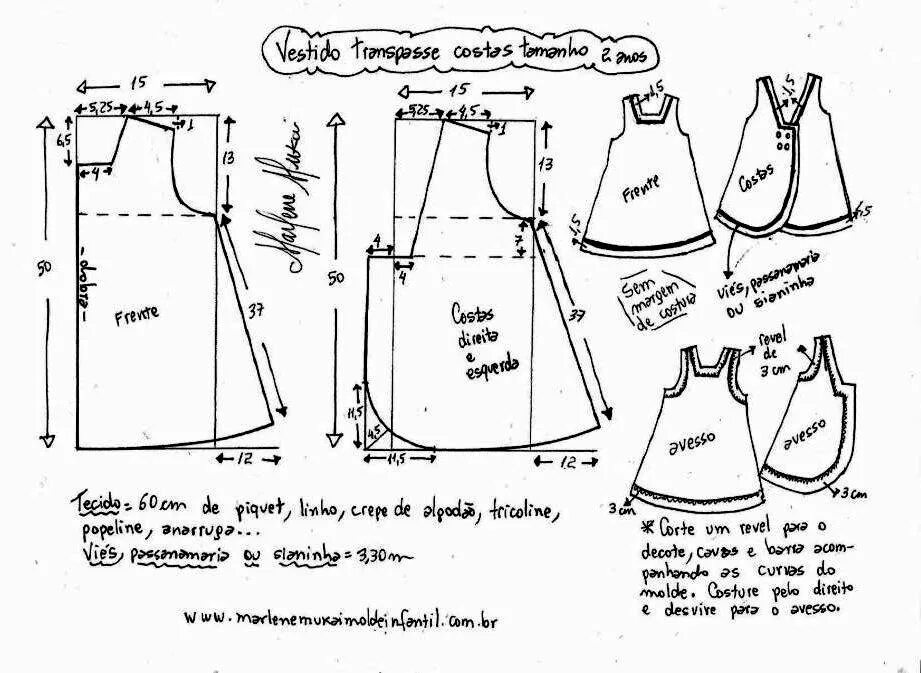 Vestido transpasse costas tamanho 2 anos
15
5,25
4,5
1
6,5
4
13
50
- dobra -
Frente
37
12
Marlene Mukai
15
5,25
4,5
1
13
50
4
4
7
Costas
direita
e
esquerda
37
11,5
4,5
11,5
12
1,5
Frente
1,5
1,5
Costas
1,5
Sem
margem
de costura
viés, passamanaria
ou sianinha
revel
de
3 cm
avesso
avesso
3 cm
3 cm
Tecido = 60 cm de piquet, linho, crepe de algodão, tricoline,
popeline, anarruga...
Viés, passamanaria ou sianinha = 3,30 m
* Corte um revel para o
decote, cavas e barra acom-
panhando as curvas do
molde. Costure pelo direito
e desvire para o avesso.
www.marlenemukaimoldeinfantil.com.br